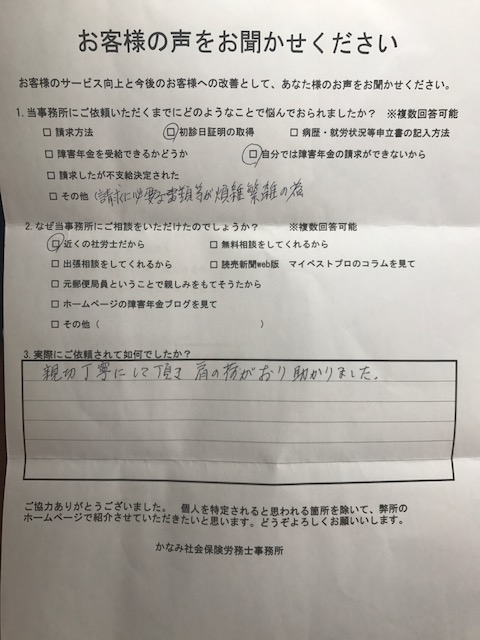 お客様の声をお聞かせください
お客様のサービス向上と今後のお客様への改善として、あなた様のお声をお聞かせください。
1.当事務所にご依頼いただくまでにどのようなことで悩んでおられましたか？ ※複数回答可能
□ 請求方法 □ 初診日証明の取得 □ 病歴・就労状況等申立書の記入方法
□ 障害年金を受給できるかどうか □ 自分では障害年金の請求ができないから
□ 請求したが不支給決定された
□ その他（請求に必要書類等が煩雑繁雑の為
2.なぜ当事務所にご相談をいただけたのでしょうか？ ※複数回答可能
□ 近くの社労士だから □ 無料相談をしてくれるから
□ 出張相談をしてくれるから □ 読売新聞web版 マイベストプロのコラムを見て
□ 元郵便局員ということで親しみをもてそうだから
□ ホームページの障害年金ブログを見て
□ その他（ ）
3.実際にご依頼されて如何でしたか？
親切丁寧にして頂き 肩の荷がおり助かりました.
ご協力ありがとうございました。 個人を特定されると思われる箇所を除いて、弊所の
ホームページで紹介させていただきたいと思います。どうぞよろしくお願いいします。
かなみ社会保険労務士事務所